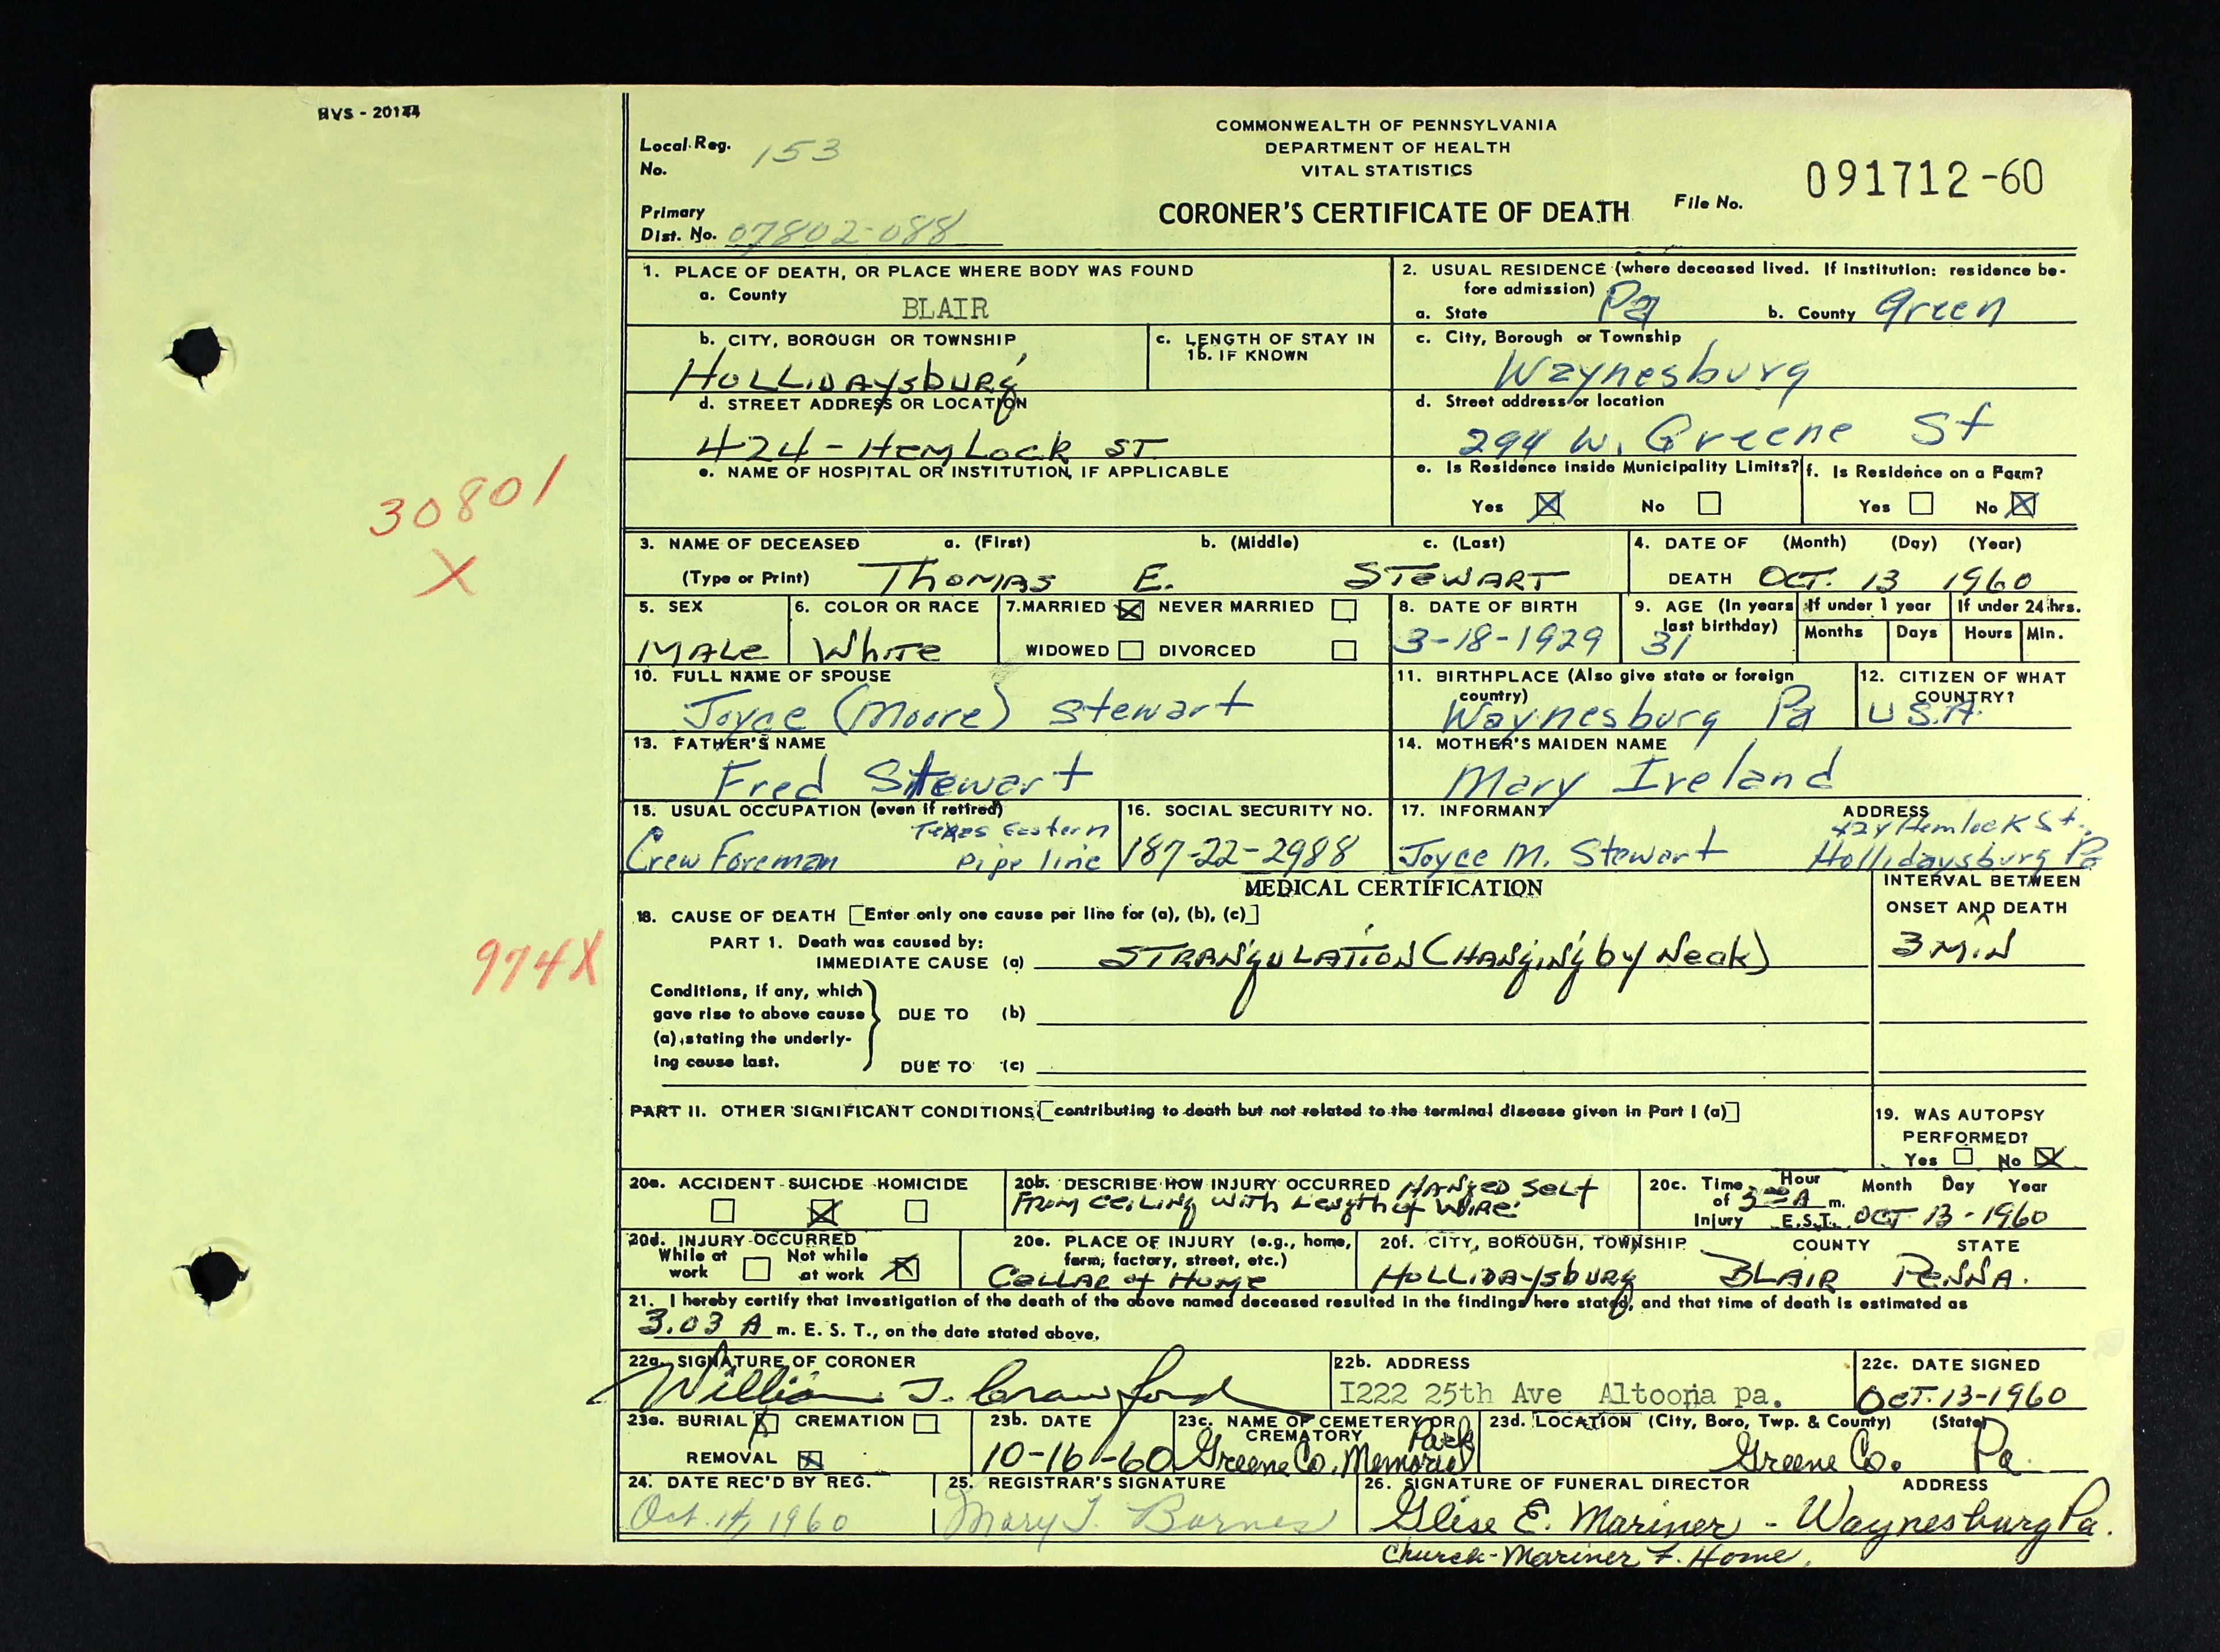 HVS - 20144
COMMONWEALTH OF PENNSYLVANIA
DEPARTMENT OF HEALTH
VITAL STATISTICS
CORONER'S CERTIFICATE OF DEATH
Local Reg. No. 153
Primary Dist. No. 07802-088
File No. 091712-60
1. PLACE OF DEATH, OR PLACE WHERE BODY WAS FOUND
a. County BLAIR
b. CITY, BOROUGH OR TOWNSHIP
HOLLIDAYSBURG
c. LENGTH OF STAY IN 1b. IF KNOWN
d. STREET ADDRESS OR LOCATION
424 - HEMLOCK ST
e. NAME OF HOSPITAL OR INSTITUTION, IF APPLICABLE
2. USUAL RESIDENCE (where deceased lived. If institution: residence be-
fore admission)
a. State Pa b. County Green
c. City, Borough or Township
Waynesburg
d. Street address or location
294 W. Greene St
e. Is Residence inside Municipality Limits?
Yes X No
f. Is Residence on a Farm?
Yes No X
30801
X
3. NAME OF DECEASED a. (First) b. (Middle) c. (Last)
(Type or Print) THOMAS E. STEWART
4. DATE OF (Month) (Day) (Year)
DEATH OCT. 13 1960
5. SEX
MALE
6. COLOR OR RACE
WHITE
7. MARRIED X NEVER MARRIED
WIDOWED DIVORCED
8. DATE OF BIRTH
3-18-1929
9. AGE (In years last birthday)
31
If under 1 year
Months Days
If under 24 hrs.
Hours Min.
10. FULL NAME OF SPOUSE
Joyce (Moore) Stewart
11. BIRTHPLACE (Also give state or foreign country)
Waynesburg Pa
12. CITIZEN OF WHAT COUNTRY?
U.S.A.
13. FATHER'S NAME
Fred Stewart
14. MOTHER'S MAIDEN NAME
Mary Ireland
15. USUAL OCCUPATION (even if retired)
Crew Foreman Texas Eastern Pipe line
16. SOCIAL SECURITY NO.
187-22-2988
17. INFORMANT ADDRESS
Joyce M. Stewart 424 Hemlock St. Hollidaysburg Pa
MEDICAL CERTIFICATION
INTERVAL BETWEEN
ONSET AND DEATH
18. CAUSE OF DEATH [Enter only one cause per line for (a), (b), (c)]
PART 1. Death was caused by:
IMMEDIATE CAUSE (a) STRANGULATION (HANGING by Neck) 3 MIN
974X
Conditions, if any, which
gave rise to above cause
(a), stating the underly-
ing cause last.
DUE TO (b)
DUE TO (c)
PART II. OTHER SIGNIFICANT CONDITIONS [contributing to death but not related to the terminal disease given in Part I (a)]
19. WAS AUTOPSY PERFORMED?
Yes No X
20a. ACCIDENT SUICIDE HOMICIDE
X
20b. DESCRIBE HOW INJURY OCCURRED HANGED Self
FROM CEILING WITH LENGTH of WIRE
20c. Time of Injury Hour Month Day Year
3 00 A m. E.S.T. OCT 13 - 1960
20d. INJURY OCCURRED
While at work Not while at work X
20e. PLACE OF INJURY (e.g., home, farm, factory, street, etc.)
CELLAR of HOME
20f. CITY, BOROUGH, TOWNSHIP COUNTY STATE
HOLLIDAYSBURG BLAIR PENNA.
21. I hereby certify that investigation of the death of the above named deceased resulted in the findings here stated, and that time of death is estimated as
3.03 A m. E. S. T., on the date stated above.
22a. SIGNATURE OF CORONER
William J. Crawford
22b. ADDRESS
1222 25th Ave Altoona pa.
22c. DATE SIGNED
OCT. 13-1960
23a. BURIAL X CREMATION
REMOVAL X
23b. DATE
10-16-60
23c. NAME OF CEMETERY OR CREMATORY
Greene Co. Memorial Park
23d. LOCATION (City, Boro, Twp. & County) (State)
Greene Co. Pa.
24. DATE REC'D BY REG.
Oct. 14, 1960
25. REGISTRAR'S SIGNATURE
Mary J. Barnes
26. SIGNATURE OF FUNERAL DIRECTOR ADDRESS
Glise E. Mariner - Waynesburg Pa.
Church-Mariner F. Home.